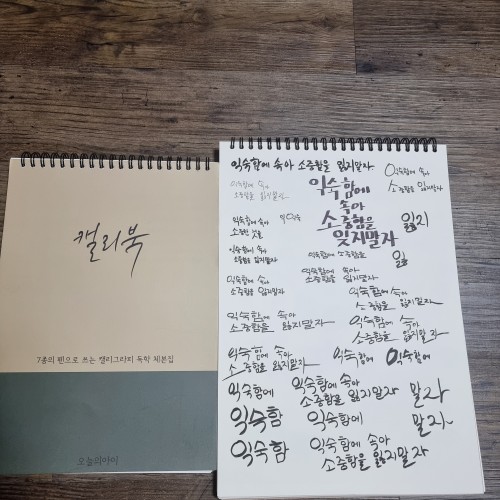 캘리북
7종의 펜으로 쓰는 캘리그라피 독학 체본집
오늘의마이
익숙함에 속아 소중함을 잃지말자
익숙함에 속아
소중함을 잃지말자
익숙함에 속아
소중함을 잃지말자
익숙함에
속아
소중함을
잊지말자
잃지
익숙
익숙함에 속아
소중한 것을
익숙함에 속아
소중함을 잃지말자
익숙함에 소중함을
잃
익숙함에 속아
소중함을 잃지말자
익숙함에 속아
소중함을 잃지말자
익숙함에 속아
소중함을 잃지말자
익숙함에 속아
소중함을 잃지말자
익숙함에 속아
소중함을 잃지말자
익숙함에 속아
소중함을 잃지말자
익숙함에
익숙함에
익숙함에
익숙함에 속아
소중함을 잃지말자
말자
익숙함
익숙함에
말자
익숙함
익숙함에 속아
소중함을 잃지말자